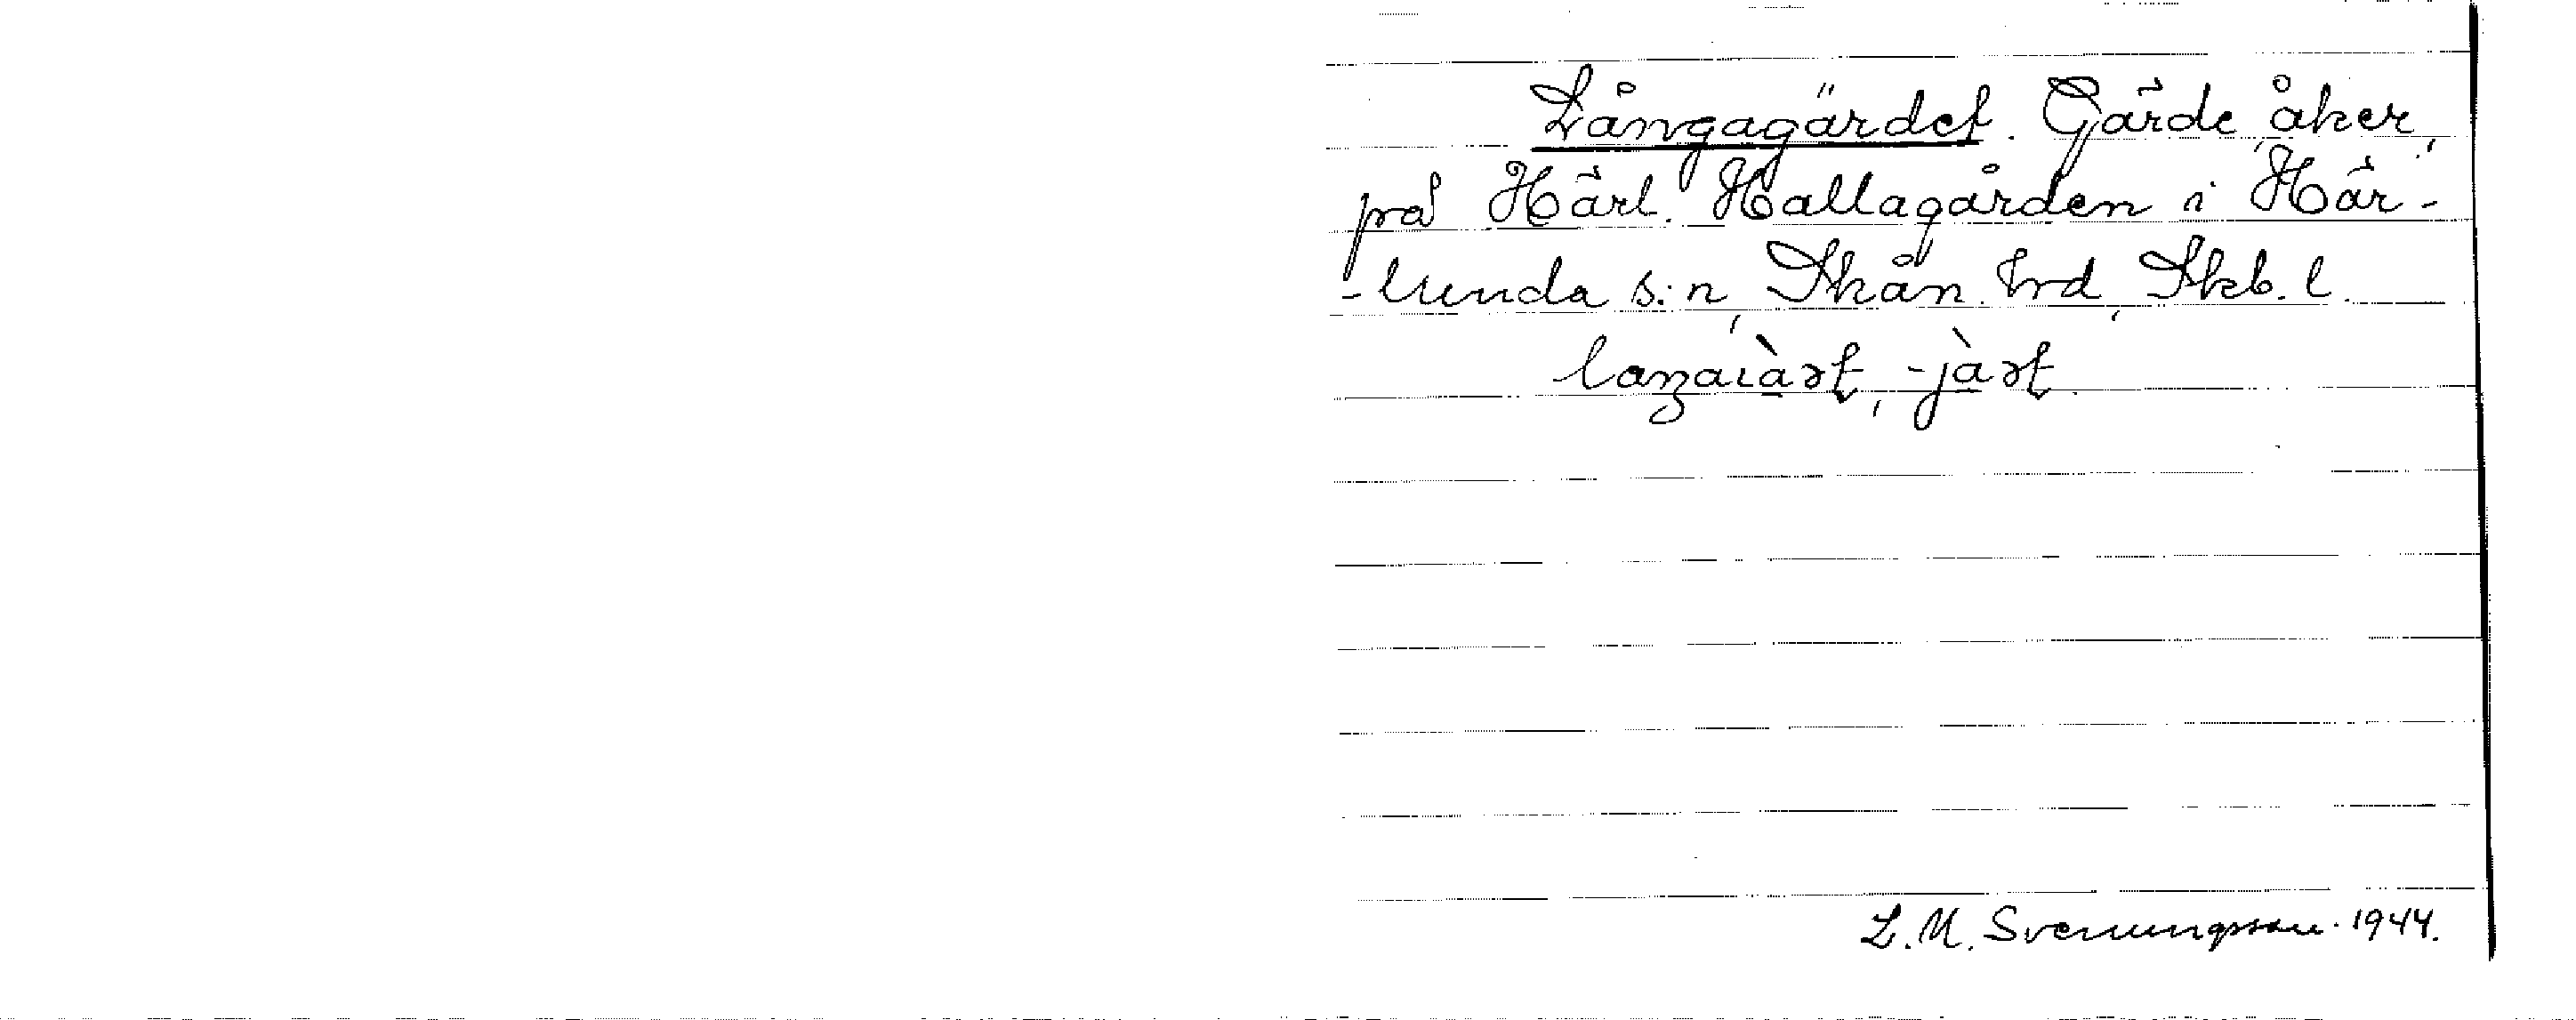 Långagärdet. Gärde, åker,
på Härl. Hallagården i Här-
-lunda s:n, Skån. hrd, Skb. l.
laŋaıàrt, -jàrt.
L. M. Svenungsson. 1944.